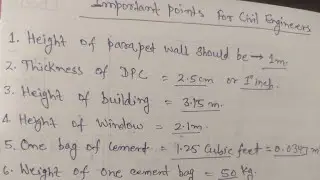 Important points for Civil Engineers
1. Height of parapet wall should be → 1m.
2. Thickness of DPC = 2.5cm or 1 inch.
3. Height of building = 3.15 m.
4 Height of Window = 2.1m.
5. One bag of cement = 1.25 Cubic feet = 0.0347 m
6. Weight of one cement bag = 50 kg.